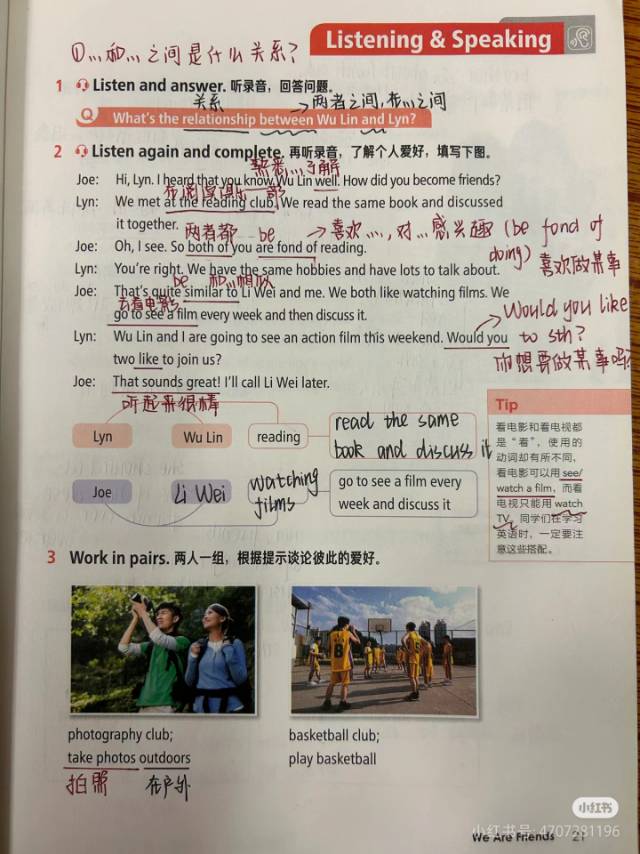 Listening & Speaking
①…和…之间是什么关系？
1 Listen and answer. 听录音，回答问题。
关系 → 两者之间,在…之间
Q What's the relationship between Wu Lin and Lyn?
2 Listen again and complete. 再听录音，了解个人爱好，填写下图。
熟悉…,了解
Joe: Hi, Lyn. I heard that you know Wu Lin well. How did you become friends?
在阅读俱乐部
Lyn: We met at the reading club. We read the same book and discussed
it together.
两者都 be → 喜欢…,对…感兴趣 (be fond of
doing) 喜欢做某事
Joe: Oh, I see. So both of you are fond of reading.
Lyn: You're right. We have the same hobbies and have lots to talk about.
be 和…相似
Joe: That's quite similar to Li Wei and me. We both like watching films. We
去看电影
go to see a film every week and then discuss it.
Would you like
to sth?
你想要做某事吗?
Lyn: Wu Lin and I are going to see an action film this weekend. Would you
two like to join us?
Joe: That sounds great! I'll call Li Wei later.
听起来很棒
Lyn Wu Lin reading read the same
book and discuss it
Joe Li Wei watching
films
go to see a film every
week and discuss it
Tip
看电影和看电视都
是“看”，使用的
动词却有所不同，
看电影可以用 see/
watch a film，而看
电视只能用 watch
TV。同学们在学习
英语时，一定要注
意这些搭配。
3 Work in pairs. 两人一组，根据提示谈论彼此的爱好。
8
photography club;
take photos outdoors
拍照 在户外
basketball club;
play basketball
小红书
小红书号: 4707281196
We Are Friends 21